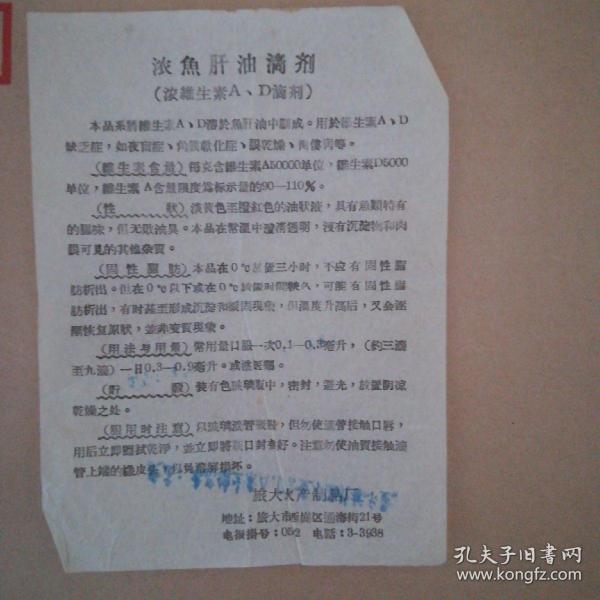 浓魚肝油滴剂
（浓維生素A、D滴剂）
本品系將維生素A、D溶於魚肝油中制成。用於維生素A、D
缺乏症，如夜盲症、角膜軟化症、眼乾燥、佝僂病等。
（維生素含量）每克含維生素A50000单位，維生素D5000
单位，維生素A含量限度爲标示量的90—110％。
（性 狀）淡黄色至橙紅色的油狀液，具有魚類特有
的腥味，但无敗油臭。本品在常溫中澄清透明，没有沉淀物和肉
眼可見的其他杂質。
（固性脂肪）本品在0℃放置三小时，不应有固性脂
肪析出。但在0℃以下或在0℃放置时間較久，可能有固性脂
肪析出，有时甚至形成沉淀和凝固現象，但溫度升高后，又会逐
漸恢复原狀，並非变質現象。
（用法与用量）常用量口服一次0.1—0.3毫升，（約三滴
至九滴）一日0.3—0.9毫升。或遵医囑。
（貯 藏）裝有色玻璃瓶中，密封，避光，放置阴凉
乾燥之处。
（服用时注意）以玻璃滴管吸取，但勿使滴管接触口唇，
用后立即擦拭乾淨，並立即將瓶口封盖好。注意勿使油質接触滴
管上端的橡皮
旅大水产制品厂
地址：旅大市西崗区通海街21号
电报掛号：052 电話：3-3938
孔夫子旧書网
www.kongfz.com